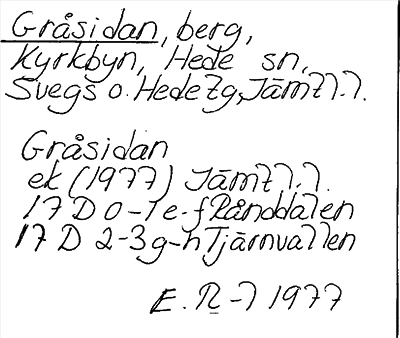 Gråsidan, berg,
Kyrkbyn, Hede sn,
Svegs o. Hede tg, Jämtl.l.
Gråsidan
ek (1977) Jämtl.l.
17 D 0-1 e-f Rånddalen
17 D 2-3 g-h Tjärnvallen
E. N-l 1977